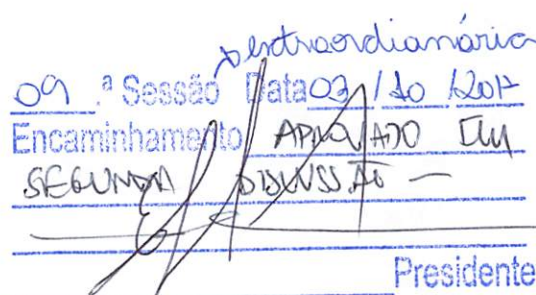 extraordianária
09 .ª Sessão Data 03 / 10 / 2017
Encaminhamento APROVADO EM
SEGUNDA DISCUSSÃO —
Presidente